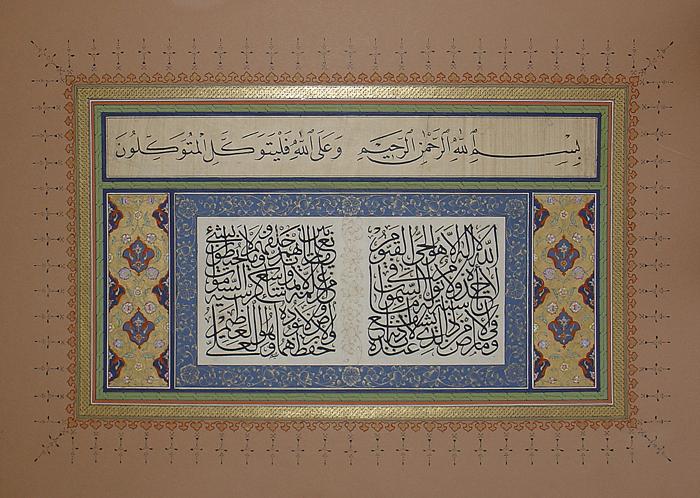 بِسْمِ اللهِ الرَّحْمٰنِ الرَّحِيمِ وَعَلَى اللهِ فَلْيَتَوَكَّلِ الْمُتَوَكِّلُونَ
الله لا اله الا هو الحي القيوم
لا تأخذه سنة ولا نوم له ما في السموات
وما في الارض من ذا الذي يشفع عنده الا باذنه
يعلم ما بين ايديهم وما خلفهم ولا يحيطون بشيء
من علمه الا بما شاء وسع كرسيه السموات
والارض ولا يؤده حفظهما وهو العلي العظيم